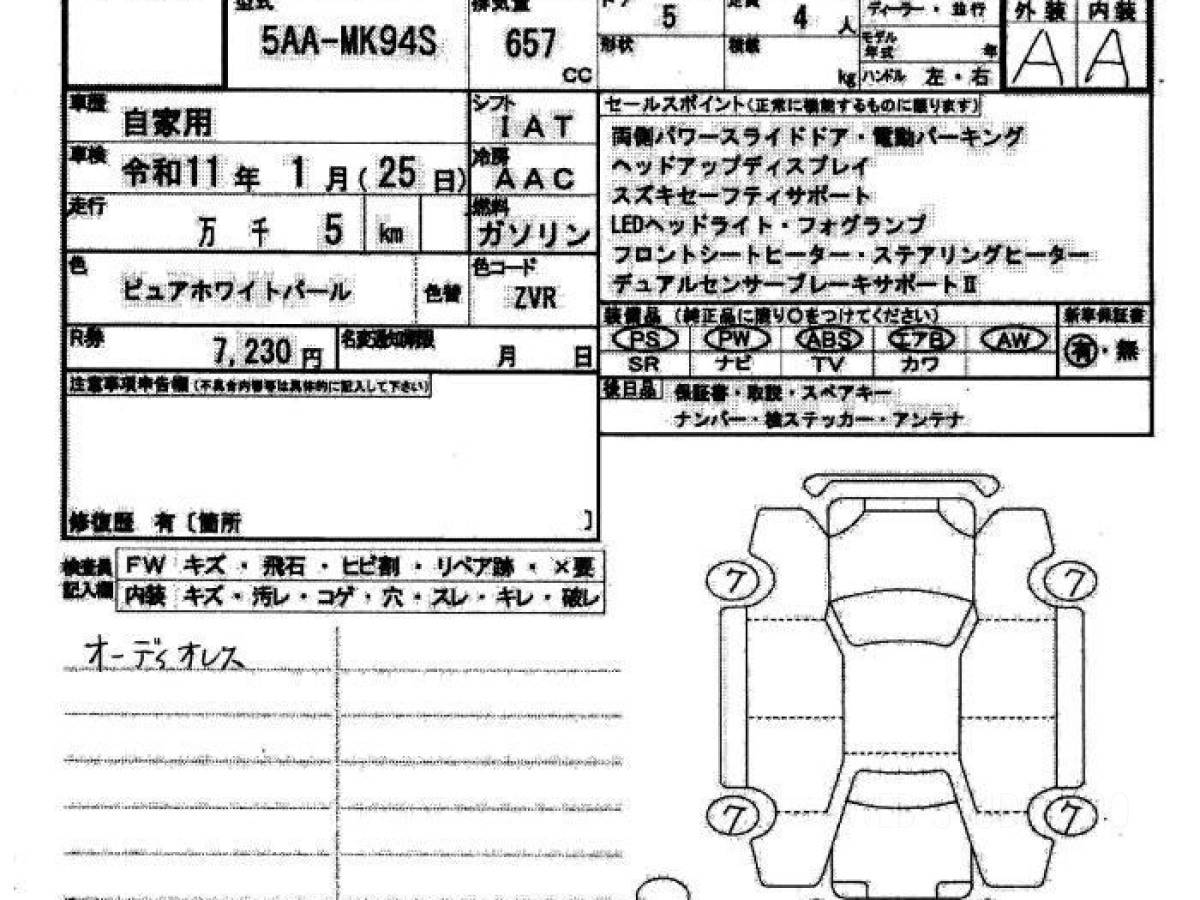 型式 排気量 ドア 定員 ディーラー・並行 外装 内装
5AA-MK94S 657 CC 5 4人 モデル年式 年 A A
形状 積載 kg ハンドル 左・右
車歴 自家用 シフト IAT
車検 令和11年 1月(25日) 冷房 AAC
走行 万 千 5 km 燃料 ガソリン
色 ピュアホワイトパール 色替 色コード ZVR
R券 7,230円 名変通知期限 月 日
注意事項申告欄(不具合内容等は具体的に記入して下さい)
修復歴 有〔箇所 〕
セールスポイント(正常に機能するものに限ります)
両側パワースライドドア・電動パーキング
ヘッドアップディスプレイ
スズキセーフティサポート
LEDヘッドライト・フォグランプ
フロントシートヒーター・ステアリングヒーター
デュアルセンサーブレーキサポートⅡ
装備品 (純正品に限り○をつけてください) 新車保証書
PS PW ABS エアB AW 有・無
SR ナビ TV カワ
後日品 保証書・取説・スペアキー
ナンバー・検ステッカー・アンテナ
検査員記入欄 FW キズ・飛石・ヒビ割・リペア跡・×要
内装 キズ・汚レ・コゲ・穴・スレ・キレ・破レ
オーディオレス
7 7
7 7